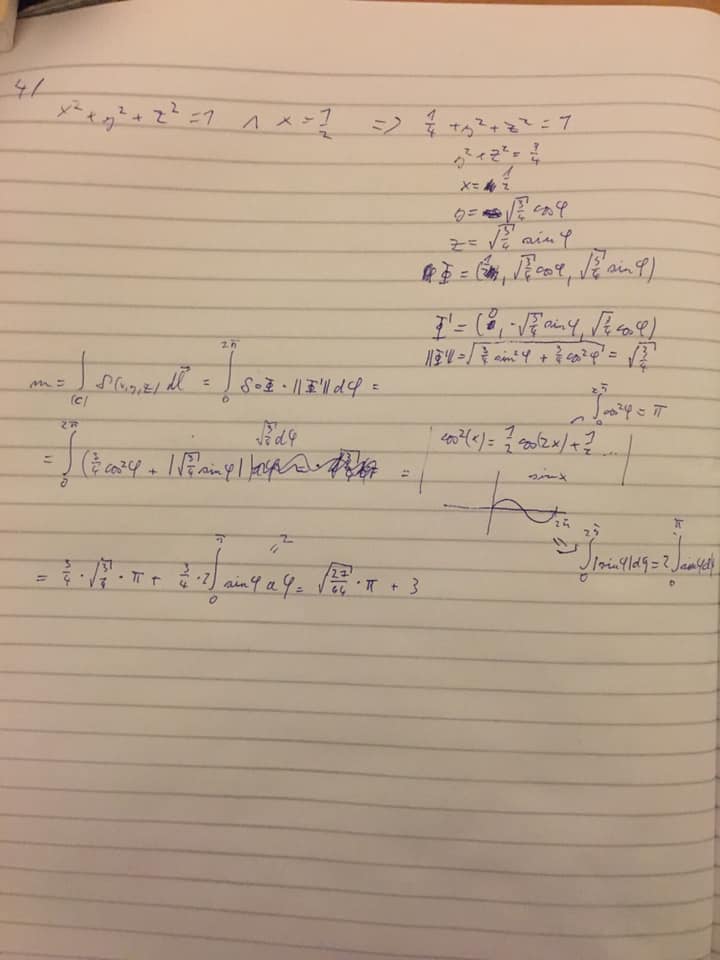 4/
x² + y² + z² = 1 ∧ x = 1/2 => 1/4 + y² + z² = 1
y² + z² = 3/4
x = 1/2
y = √(3/4) cos φ
z = √(3/4) sin φ
Φ = (1/2, √(3/4) cos φ, √(3/4) sin φ)
Φ' = (0, -√(3/4) sin φ, √(3/4) cos φ)
||Φ'|| = √(3/4 sin²φ + 3/4 cos²φ) = √(3/4)
m = ∫_(c) δ(x,y,z) dl = ∫_0^{2π} δ∘Φ · ||Φ'|| dφ =
∫_0^{2π} cos²φ = π
= ∫_0^{2π} (3/4 cos²φ + |√(3/4) sin φ|) √(3/4) dφ = | cos²(x) = 1/2 cos(2x) + 1/2 ... |
sin x
2π
∫_0^{2π} |sin φ| dφ = 2 ∫_0^π sin φ dφ
= 3/4 · √(3/4) · π + 3/4 · 2 ∫_0^π sin φ dφ = √(27/64) · π + 3
= 2